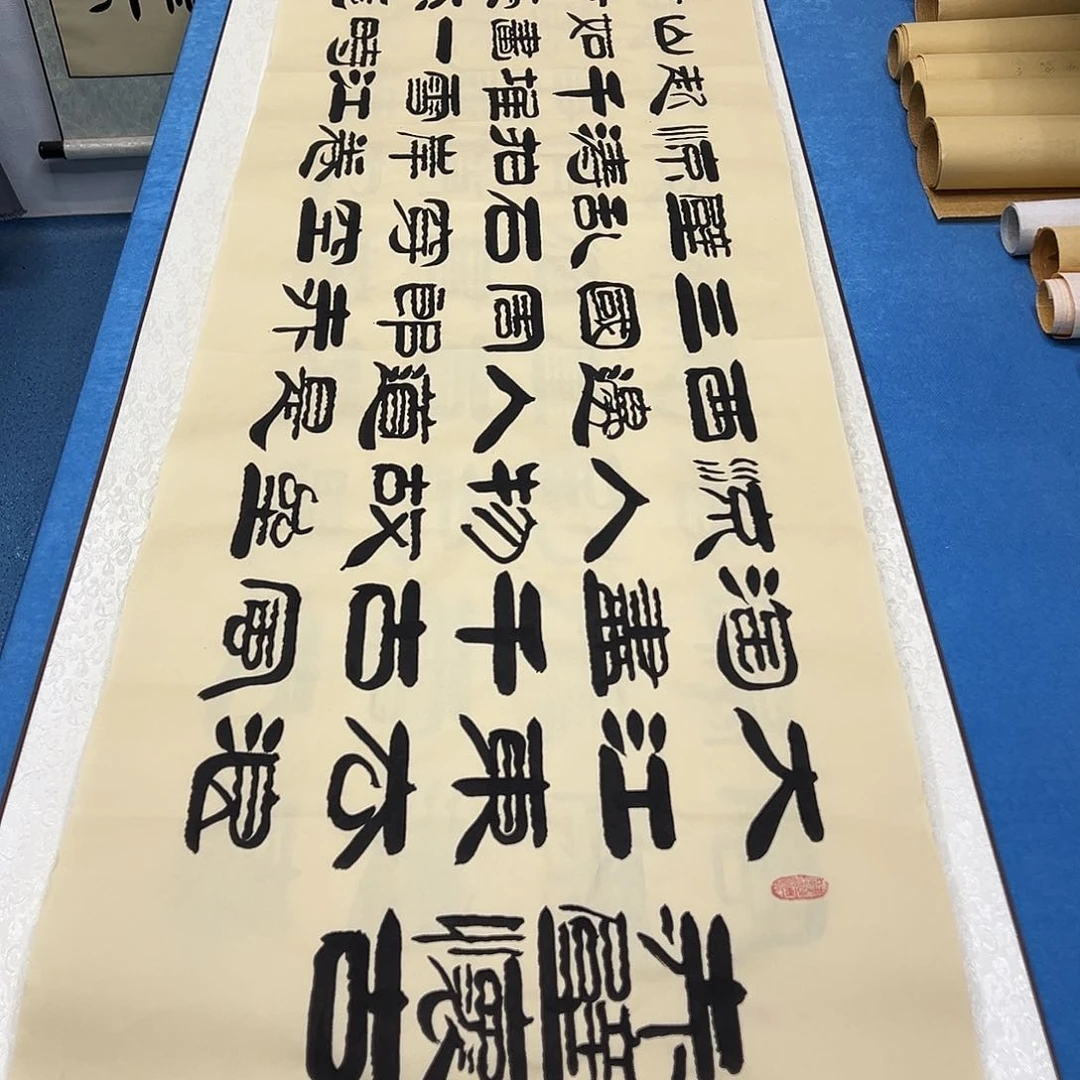 赤壁懷古
大江東去浪
淘盡千古風
流人物故壘
西邊人道是
三國周郎赤
壁亂石穿空
惊濤拍岸卷
起千堆雪江
山如畫一時